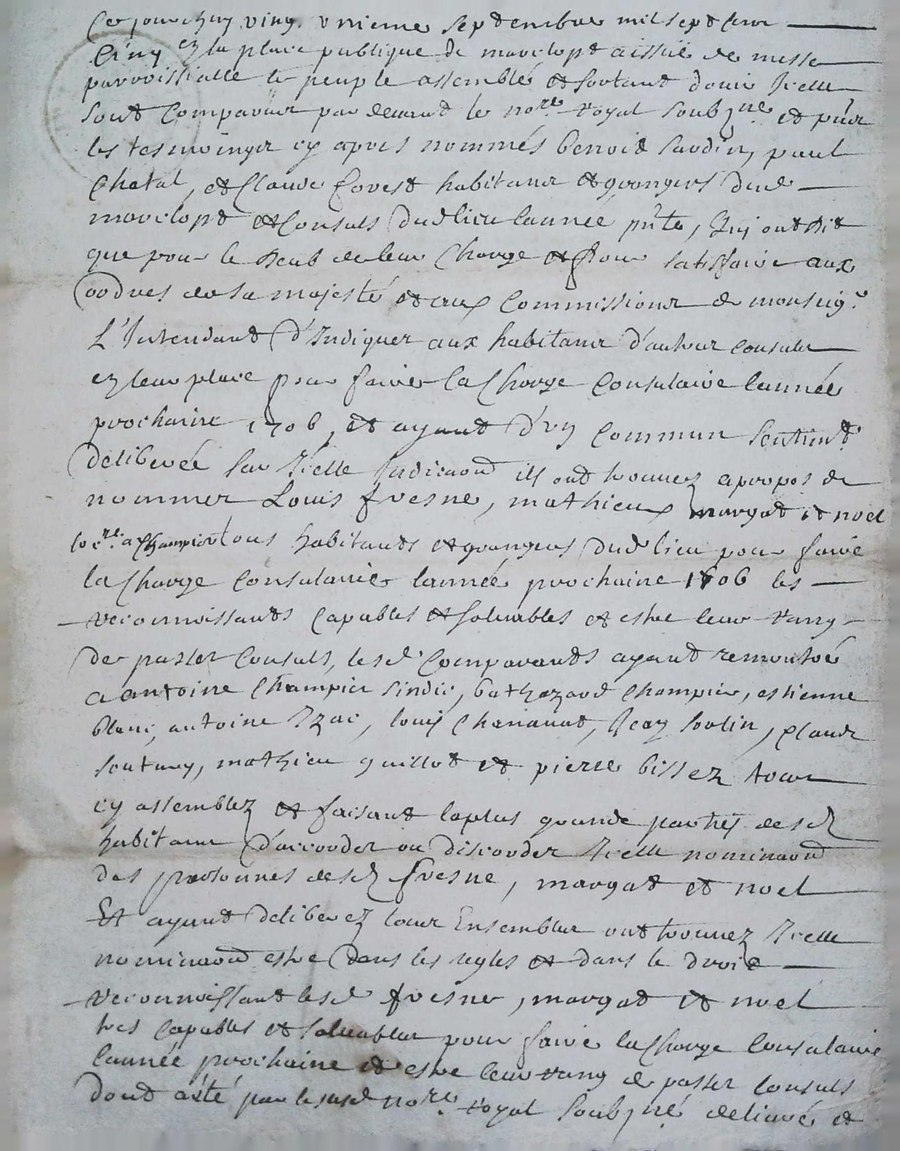 Ce jourdhuy vingt unieme septembre mil sept cent
cinq en la place publique de marclopt a issue de messe
parroissialle le peuple assemblé et sortant douir Icelle
sont comparus par devant le nore royal soubzné et pñts
les tesmoings cy apres nommés benoit Sardin, paul
Chatal, et Claude Covest habitans et grangers dud
marclopt et Consuls dud lieu lannée pñte, Quj ont dit
que pour le deub de leur Charge et pour satisfaire aux
ordres de sa majesté et aux Commissions de monseigr
L'Intendant d'Indiquer aux habitans d'autres consuls
en leur place pour faire la Charge Consulaire lannée
prochaine 1706, et ayant d'un commun sentimt
deliberée sur Icelle Indicaõn ils ont trouvez a propos de
nommer Louis fresne, mathieu margat et noel
Champier tous habitants et grangers dud lieu pour faire
la Charge Consulaire lannée prochaine 1706 les
reconnoissants Capables et solvables et estre leur rang
de passer Consuls, lesd Comparants ayant remontré
a antoine Champier sindic, bathazard Champier, estienne
blanc, antoine Izac, louis Chanavat, Jean Solin, Claude
, mathieu guillot et pierre bissez tous
cy assemblez et faisant la plus grande partie desd
habitans d'accorder ou discorder Icelle nominaõn
des personnes desd fresne, margat et noel
Et ayant deliberez tous Ensembles ont trouvez Icelle
nominaõn estre dans les regles et dans le droit
reconnoissant lesd fresne, margat et noel
tres capables et solvables pour faire la Charge Consulaire
lannée prochaine et estre leur rang de passer Consuls
dont a esté par le susd nore royal soubzné delivré et